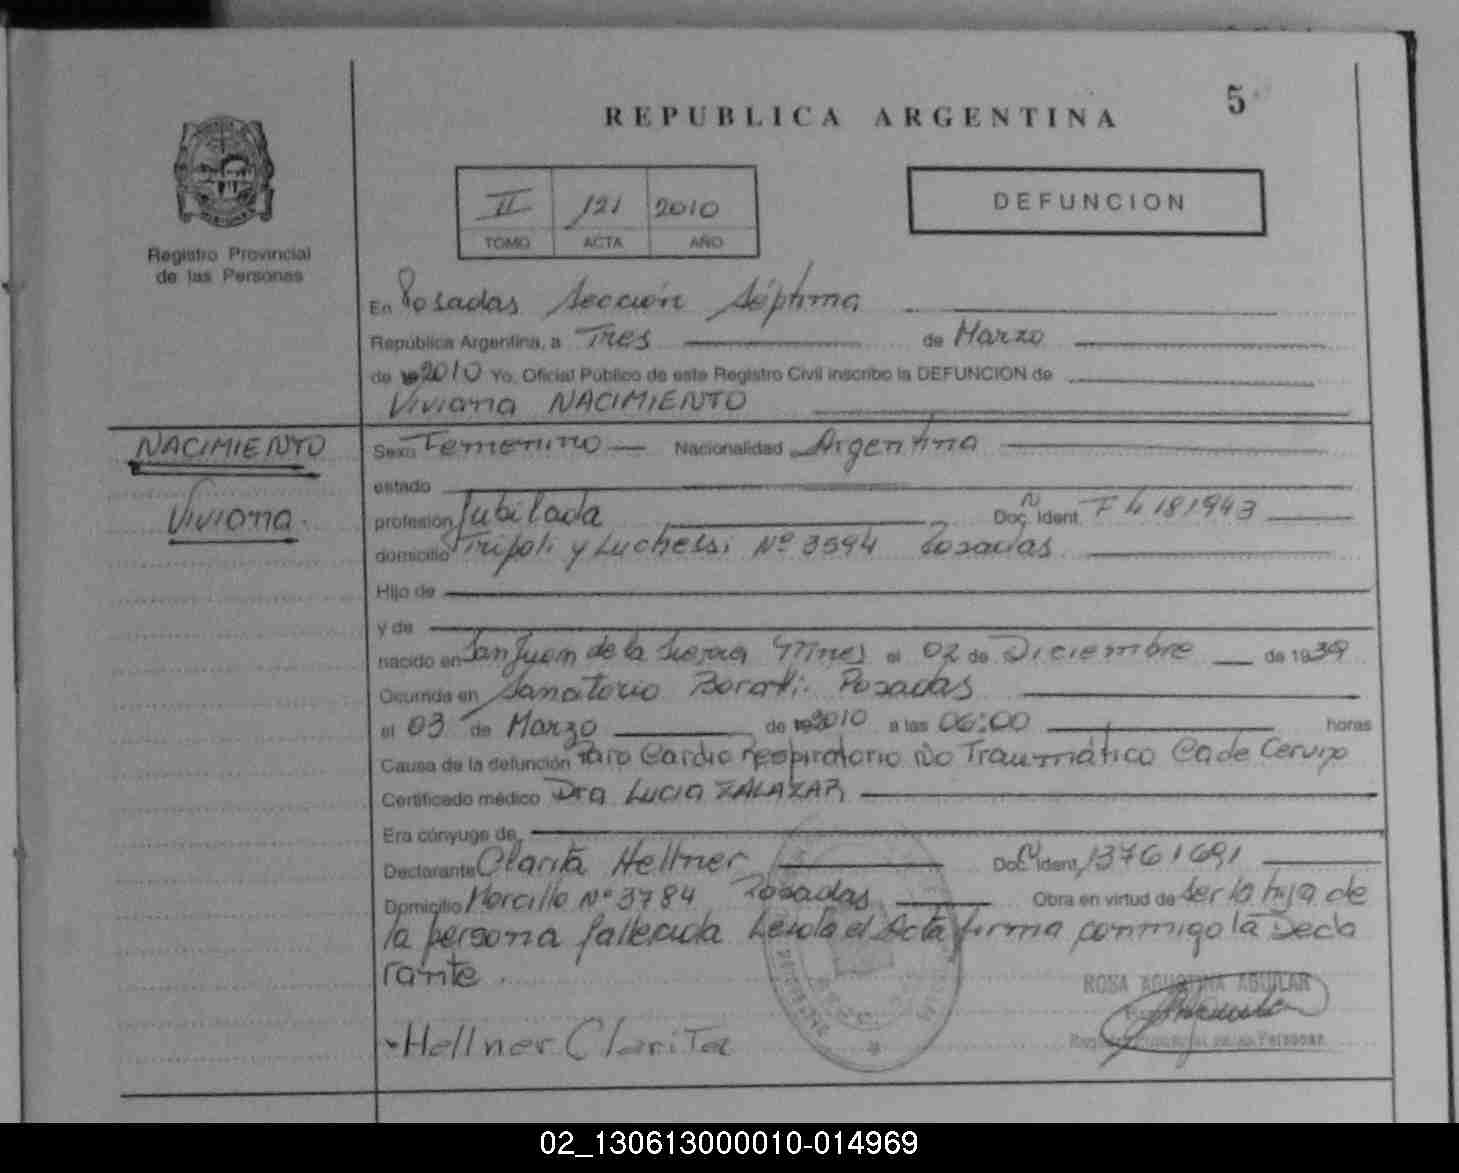 5
REPUBLICA ARGENTINA
II 121 2010
TOMO ACTA AÑO
DEFUNCION
Registro Provincial
de las Personas
En Posadas Sección Séptima
República Argentina, a Tres de Marzo
de 2010 Yo, Oficial Público de este Registro Civil inscribo la DEFUNCION de
Viviana NACIMIENTO
NACIMIENTO
Viviana
Sexo Femenino Nacionalidad Argentina
estado
profesión Jubilada Doc. Ident. F 4181943
domicilio Tripoli y Luchessi Nº 3594 Posadas
Hijo de
y de
nacido en San Juan de la Sierra Mnes el 02 de Diciembre de 1939
Ocurrida en Sanatorio Boratti. Posadas
el 03 de Marzo de 2010 a las 06:00 horas
Causa de la defunción Paro Cardio Respiratorio No Traumático Ca de Cervix
Certificado médico Dra Lucia ZALAZAR
Era cónyuge de
Declarante Clarita Hellner Doc. Ident. 13761691
Domicilio Morcillo Nº 3784 Posadas Obra en virtud de ser la hija de
la persona fallecida Leida el Acta firma conmigo la Decla
rante.
Hellner Clarita
ROSA AGUSTINA AGUILAR
02_130613000010-014969